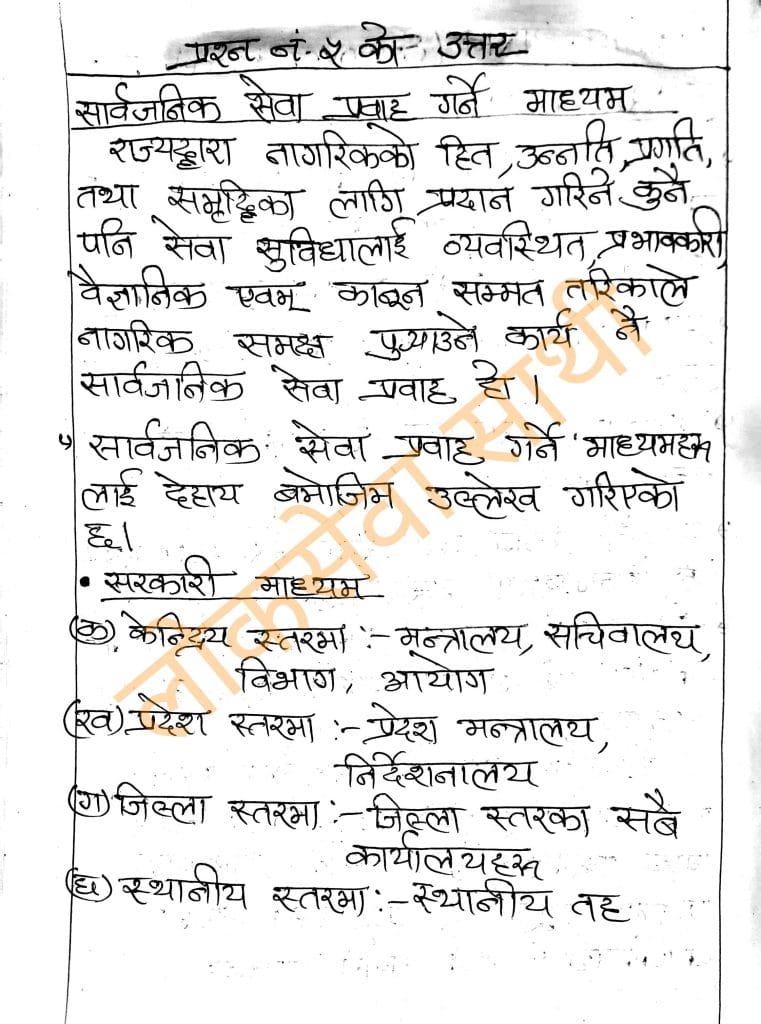 प्रश्न नं. ५ को उत्तर
सार्वजनिक सेवा प्रवाह गर्ने माध्यम
राज्यद्वारा नागरिकको हित, उन्नति, प्रगति,
तथा समृद्धिका लागि प्रदान गरिने कुनै
पनि सेवा सुविधालाई व्यवस्थित, प्रभावकारी,
वैज्ञानिक एवम् कानून सम्मत तरिकाले
नागरिक समक्ष पुर्‍याउने कार्य नै
सार्वजनिक सेवा प्रवाह हो ।
सार्वजनिक सेवा प्रवाह गर्ने माध्यमहरू
लाई देहाय बमोजिम उल्लेख गरिएको
छ।
• सरकारी माध्यम
(क) केन्द्रिय स्तरमा :- मन्त्रालय, सचिवालय,
विभाग, आयोग
(ख) प्रदेश स्तरमा :- प्रदेश मन्त्रालय,
निर्देशनालय
(ग) जिल्ला स्तरमा :- जिल्ला स्तरका सबै
कार्यालयहरू
(घ) स्थानीय स्तरमा :- स्थानीय तह
लोकसेवा साथी